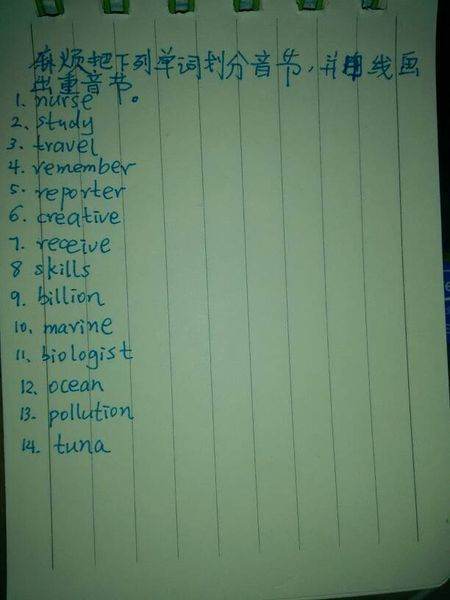 麻烦把下列单词划分音节,并用线画
出重音节。
1. nurse
2. study
3. travel
4. remember
5. reporter
6. creative
7. receive
8 skills
9. billion
10. marine
11. biologist
12. ocean
13. pollution
14. tuna